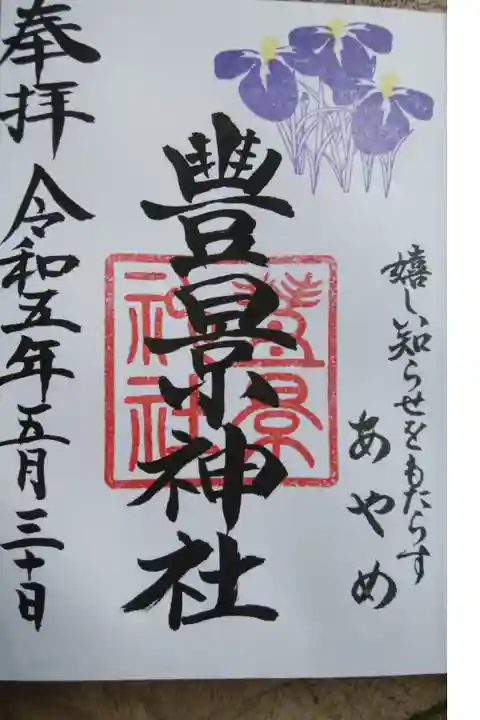 嬉しい知らせをもたらす
あやめ
豊景神社
豊景
神社
奉拝
令和五年五月三十日